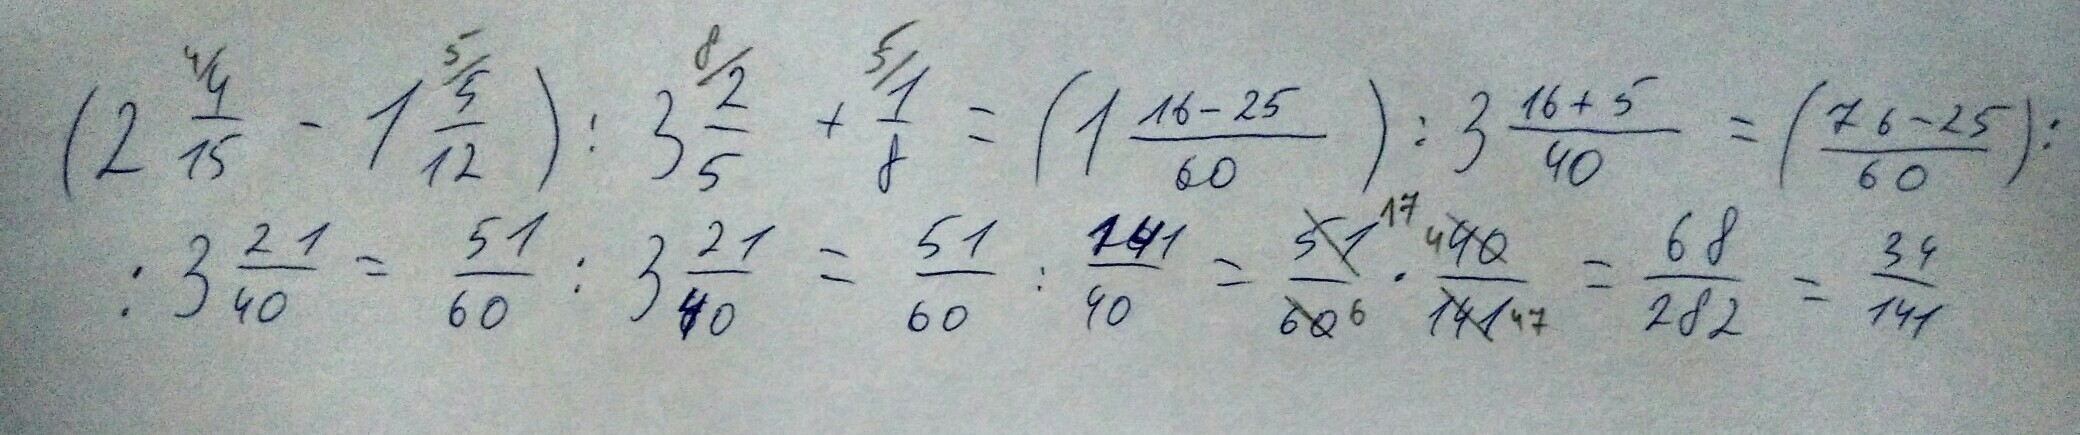 (2 4/15 - 1 5/12) : 3 2/5 + 1/8 = (1 16-25/60) : 3 16+5/40 = (76-25/60) :
: 3 21/40 = 51/60 : 3 21/40 = 51/60 : 141/40 = 51/60 17 6 · 40/141 4 47 = 68/282 = 34/141